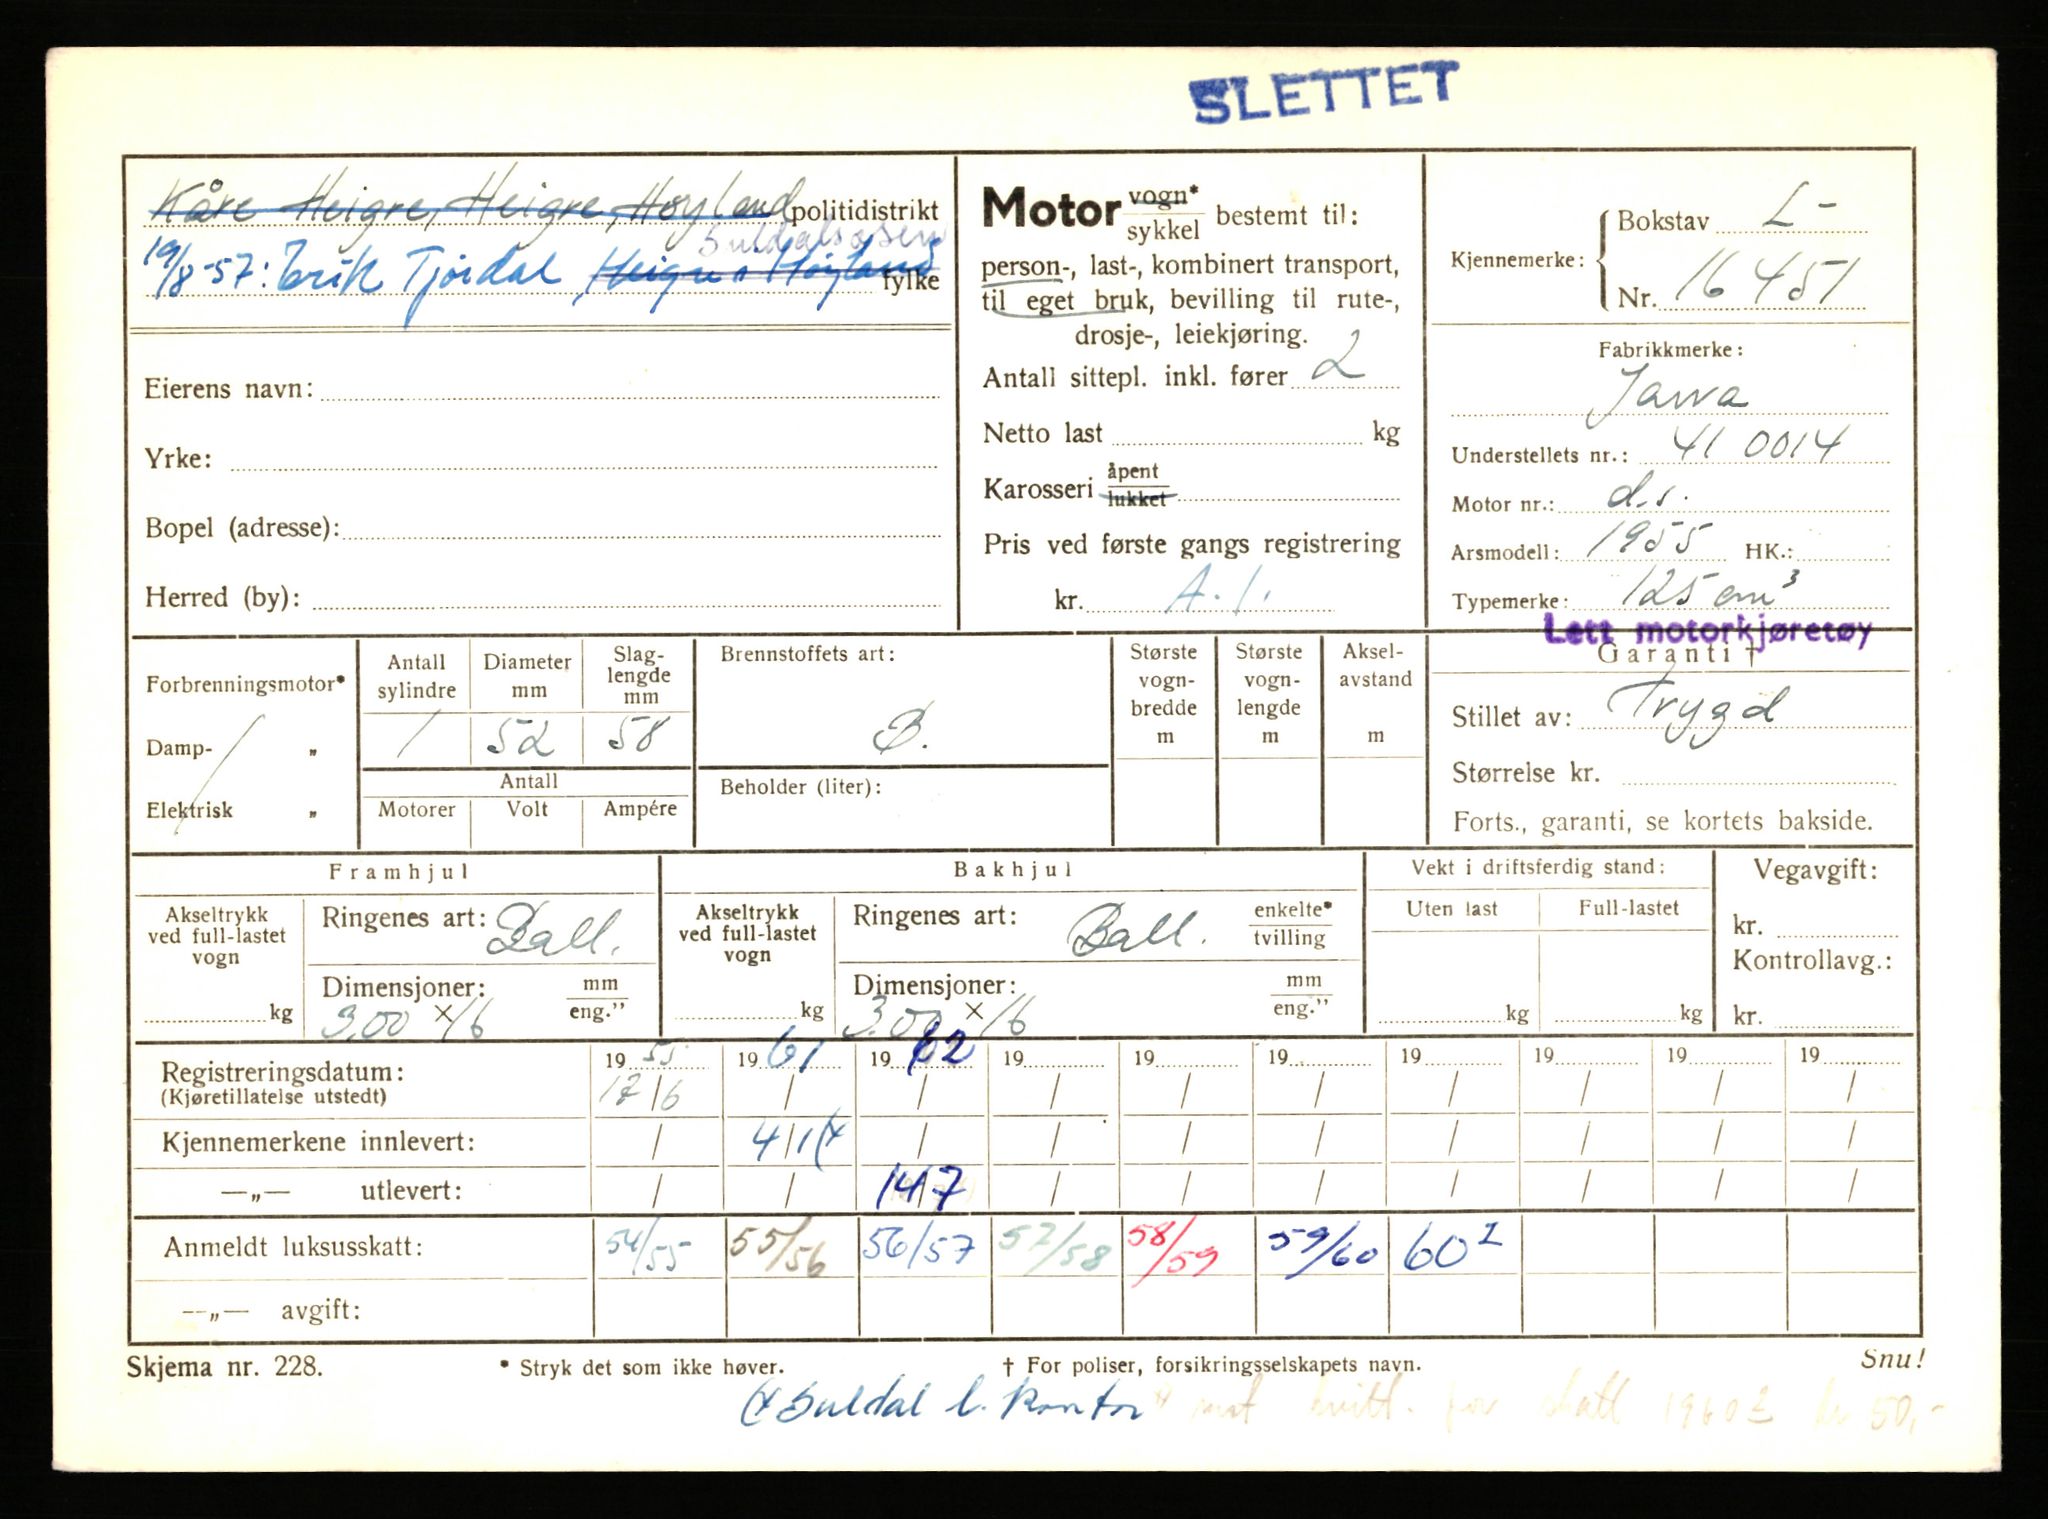 SLETTET
Kåre Heigre, Heigre, Høyland politidistrikt
Suldalsosen
19/8-57: Erik Tjørdal, Heigre, Høyland fylke
Eierens navn:
Yrke:
Bopel (adresse):
Herred (by):
Motor vogn*
sykkel bestemt til:
person-, last-, kombinert transport,
til eget bruk, bevilling til rute-,
drosje-, leiekjøring.
Antall sittepl. inkl. fører 2
Netto last kg
Karosseri åpent
lukket
Pris ved første gangs registrering
kr. A.1.
Kjennemerke: Bokstav L-
Nr. 16451
Fabrikkmerke:
Jawa
Understellets nr.: 41 0014
Motor nr.: d.s.
Arsmodell: 1955 HK.:
Typemerke: 125 cm³
Lett motorkjøretøy
Garanti †
Stillet av: Trygd
Størrelse kr.
Forts., garanti, se kortets bakside.
Forbrenningsmotor*
Damp- „
Elektrisk „
Antall sylindre Diameter mm Slag-lengde mm
1 52 58
Antall
Motorer Volt Ampére
Brennstoffets art:
B.
Beholder (liter):
Største vogn-bredde m
Største vogn-lengde m
Aksel-avstand m
Framhjul
Akseltrykk ved full-lastet vogn
kg
Ringenes art: Ball.
Dimensjoner: mm
eng.”
3.00 × 16
Bakhjul
Akseltrykk ved full-lastet vogn
kg
Ringenes art: Ball. enkelte*
tvilling
Dimensjoner: mm
eng.”
3.00 × 16
Vekt i driftsferdig stand:
Uten last Full-lastet
kg kg
Vegavgift:
kr.
Kontrollavg.:
kr.
Registreringsdatum: 1955 1961 1962 19 19 19 19 19 19 19
(Kjøretillatelse utstedt) 17/6 / / / / / / / / /
Kjennemerkene innlevert: / 4/1 (x / / / / / / / /
—„— utlevert: / / 14/7 / / / / / / /
Anmeldt luksusskatt: 54/55 55/56 56/57 57/58 58/59 59/60 60²
—„— avgift:
Skjema nr. 228. * Stryk det som ikke høver. † For poliser, forsikringsselskapets navn. Snu!
(x Suldal l. kontor mot kvitt. for skatt 1960 2 kr 50,-